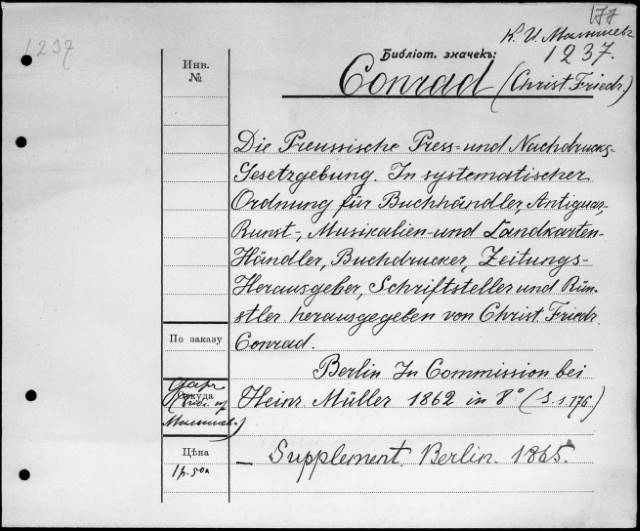 177
К. И. Малышев
1237
Библіот. значекъ: 1237.
Инв. №
Conrad (Christ. Friedr.)
Die Preussische Press- und Nachdrucks-
Gesetzgebung. In systematischer
Ordnung für Buchhändler, Antiquar,
Kunst-, Musikalien- und Landkarten-
Händler, Buchdrucker, Zeitungs-
Herausgeber, Schriftsteller und Kün-
stler herausgegeben von Christ. Friedr.
По заказу
Conrad.
Berlin In Commission bei
Даръ
Heinr. Müller 1862 in 8° (S. 1.176)
Малышев.)
Цѣна
1 р. 50 к
— Supplement. Berlin. 1865.